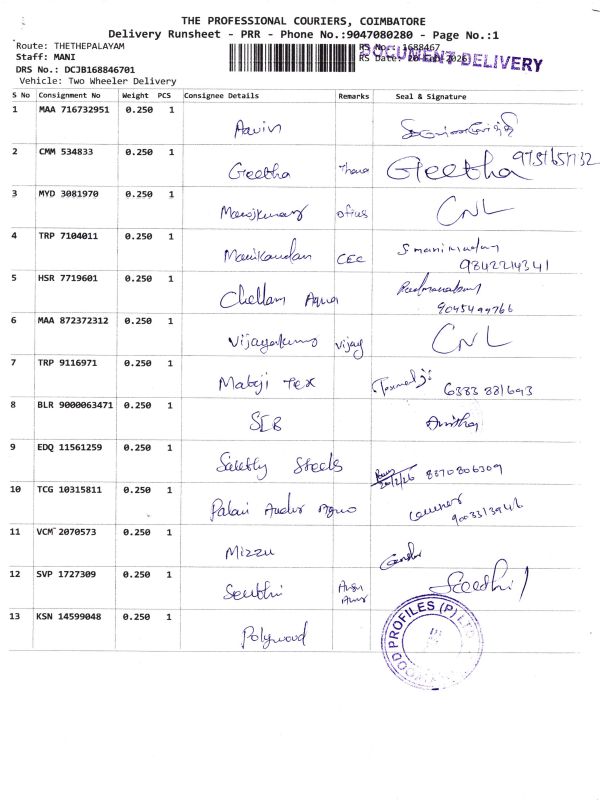 THE PROFESSIONAL COURIERS, COIMBATORE
Delivery Runsheet - PRR - Phone No.:9047080280 - Page No.:1
Route: THETHEPALAYAM
RS No: 1688467
Staff: MANI
RS Date: 20-Feb-2026
DOCUMENT DELIVERY
DRS No.: DCJB168846701
Vehicle: Two Wheeler Delivery
S No Consignment No Weight PCS Consignee Details Remarks Seal & Signature
1 MAA 716732951 0.250 1 Aavin
2 CMM 534833 0.250 1 Geetha Geetha
3 MYD 3081970 0.250 1 Manojkumar CNL
4 TRP 7104011 0.250 1 Manikandan CEC 9842214341
5 HSR 7719601 0.250 1 Chellam Aqua
6 MAA 872372312 0.250 1 Vijayakumar Vijay CNL
7 TRP 9116971 0.250 1 Tex 6383 881693
8 BLR 9000063471 0.250 1 Anitha
9 EDQ 11561259 0.250 1 Steels 20/2/26 8370806309
10 TCG 10315811 0.250 1 Palani
11 VCM 2070573 0.250 1 Mizzu
12 SVP 1727309 0.250 1 Senthil
13 KSN 14599048 0.250 1 Polywood
PROFILES (P) LTD